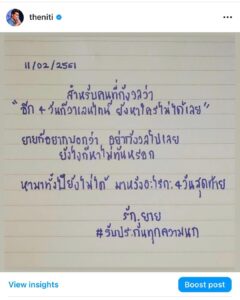 theniti
11/02/2561
สำหรับคนที่กังวลว่า
"อีก 4 วันก็วาเลนไทน์ ยังหาใครไม่ได้เลย"
ยายก็อยากบอกว่า อย่ากังวลไปเลย
ยังไงก็หาไม่ทันหรอก
หามาทั้งปียังไม่ได้ มาหวังอะไรกะ 4 วันสุดท้าย
รัก. ยาย
#รับประกันทุกความนก
View insights
Boost post